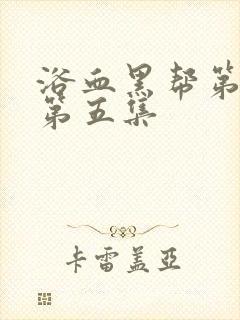 浴血黑帮第
第五集
卡雷盖亚